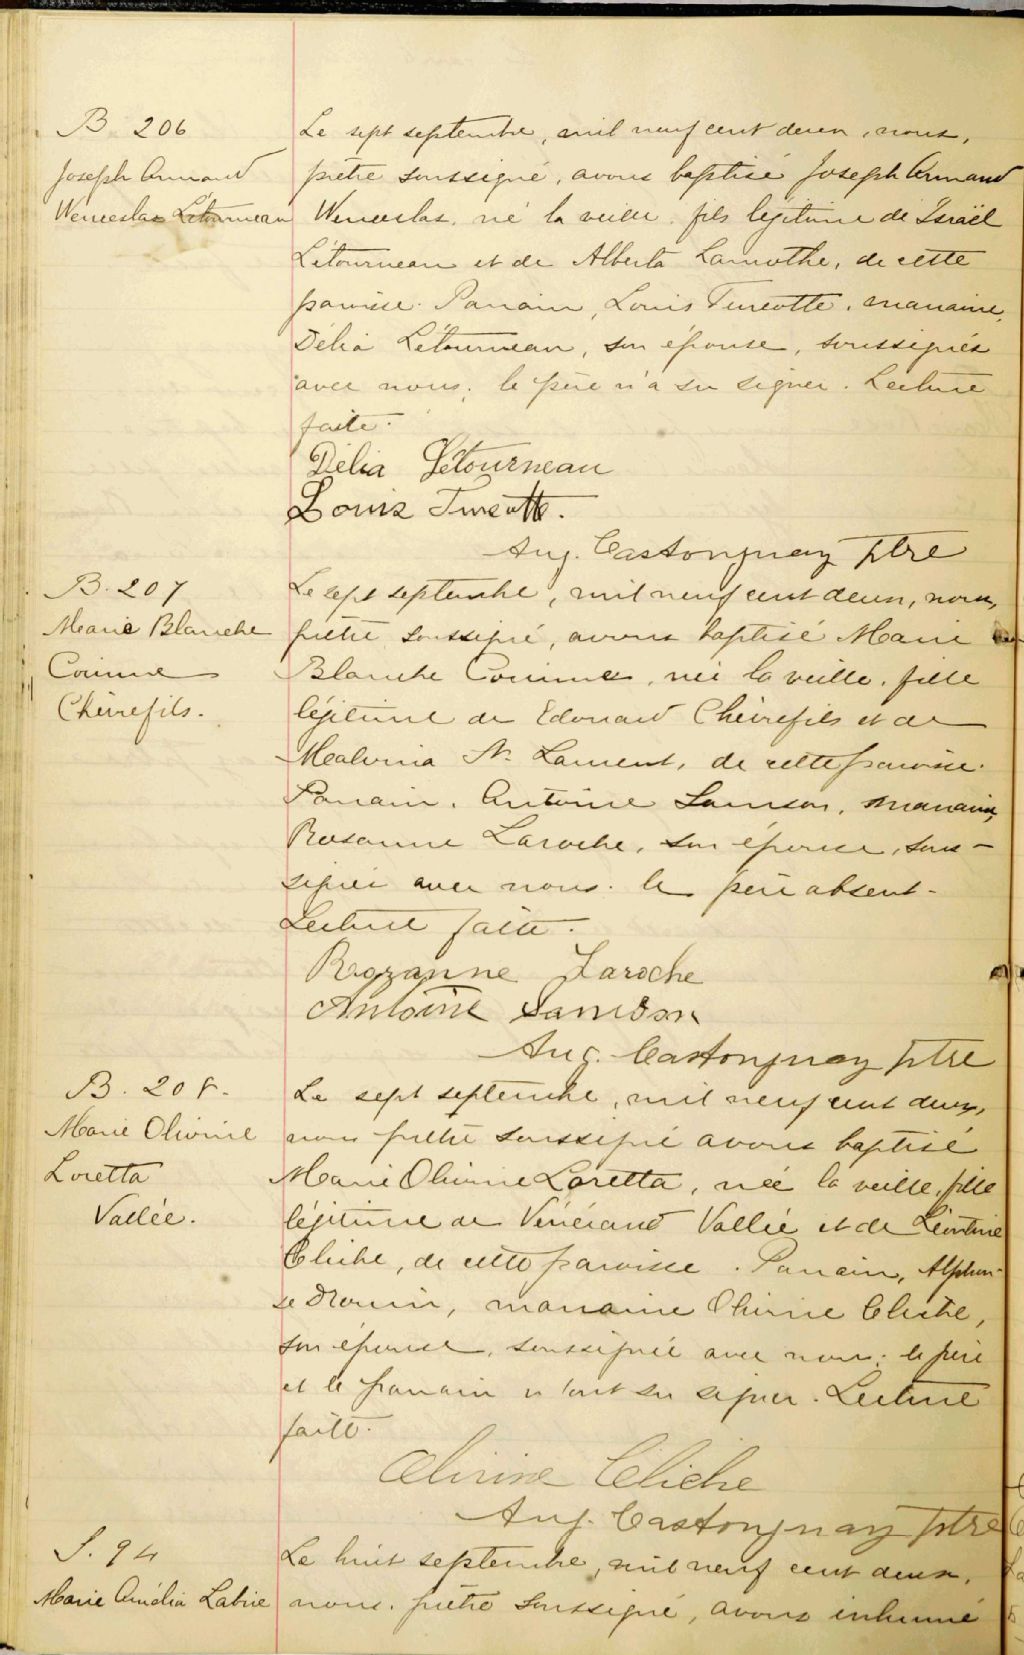 B 206
Joseph Armand
Wenceslas Létourneau
Le sept septembre, mil neuf cent deux, nous,
prêtre soussigné, avons baptisé Joseph Armand
Wenceslas, né la veille, fils légitime de Israël
Létourneau et de Alberta Lamothe, de cette
paroisse. Parrain, Louis Turcotte, marraine,
Délia Létourneau, son épouse, soussignés
avec nous; le père n'a su signer. Lecture
faite.
Délia Létourneau
Louis Turcotte.
Aug. Castonguay ptre
B. 207
Marie Blanche
Corinne
Chèvrefils.
Le sept septembre, mil neuf cent deux, nous,
prêtre soussigné, avons baptisé Marie
Blanche Corinne, née la veille, fille
légitime de Edouard Chèvrefils et de
Malvina St Laurent, de cette paroisse.
Parrain, Antoine Samson, marraine,
Rosanne Laroche, son épouse, sous-
signés avec nous. le père absent.
Lecture faite.
Rozanne Laroche
Antoine Samson
Aug. Castonguay ptre
B. 208.
Marie Olivine
Loretta
Vallée.
Le sept septembre, mil neuf cent deux,
nous prêtre soussigné avons baptisé
Marie Olivine Loretta, née la veille, fille
légitime de Vénérand Vallée et de Léontine
Cliche, de cette paroisse. Parrain, Alphon-
se Drouin, marraine Olivine Cliche,
son épouse, soussignée avec nous; le père
et le parrain n'ont su signer. Lecture
faite.
Olivine Cliche
Aug. Castonguay ptre
S. 94
Marie Amélia Labrie
Le huit septembre, mil neuf cent deux,
nous, prêtre soussigné, avons inhumé